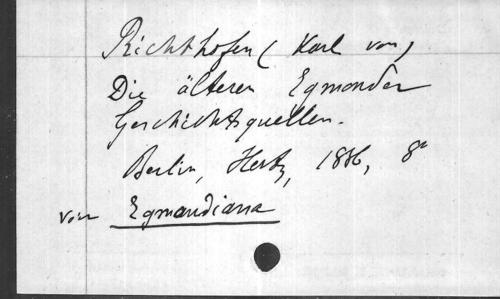 Richthofen (Karl von)
Die älteren Egmonder
Geschichtsquellen.
Berlin, Hertz, 1886, 8°
voir Egmondiana